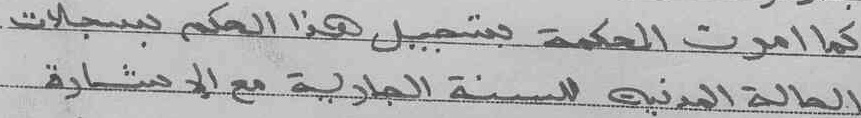 كما امرت المحكمة بتسجيل هذا الحكم بسجلات
الحالة المدنية للسنة الجارية مع الإشارة